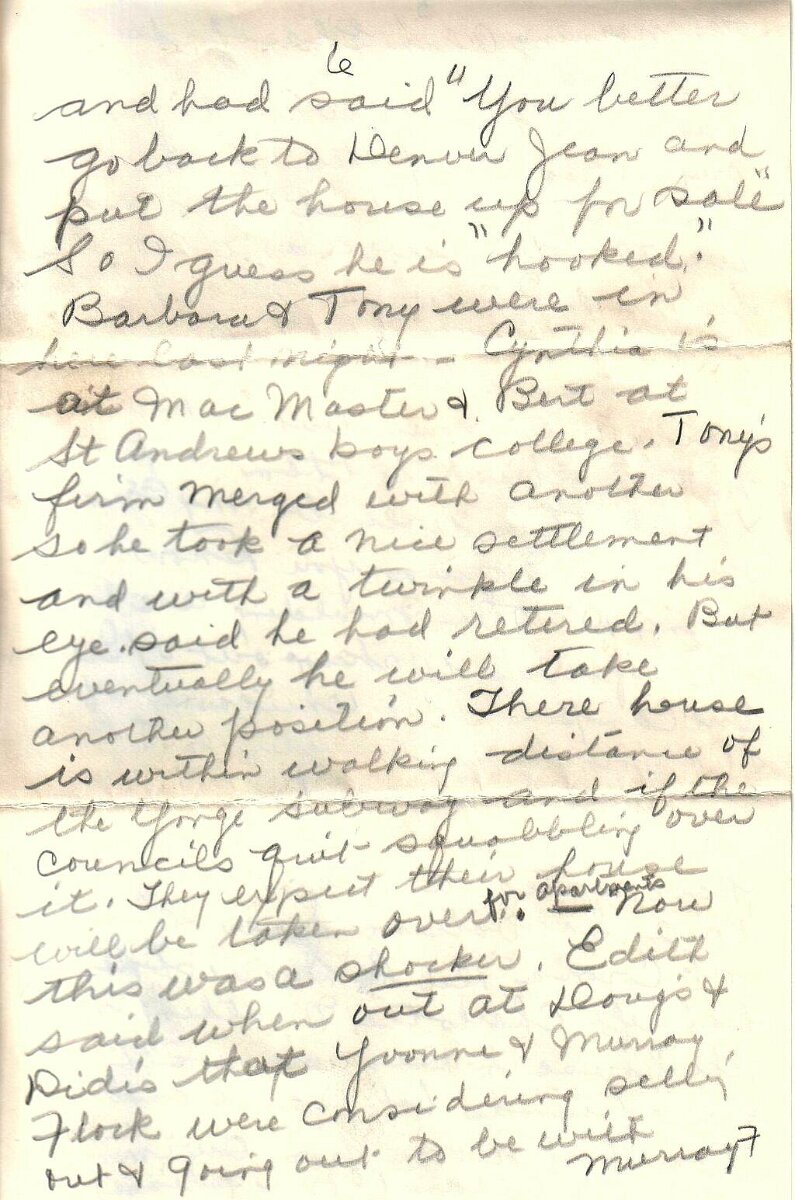 6
and had said "You better
go back to Denver Jean and
put the house up for sale"
So I guess he is "hooked."
Barbara & Tony were in
here last night - Cynthia is
at Mac Master & Bert at
St Andrews boys college. Tony's
firm merged with another
so he took a nice settlement
and with a twinkle in his
eye. said he had retered. But
eventually he will take
another position. There house
is within walking distance of
the Yonge subway and if the
councils quit squabbling over
it. They expect their house
for apartments
will be taken over. — Now
this was a shocker. Edith
said when out at Doug's &
Didi's that Yvonne & Murray
Flock were considering selling
out & going out to be with
Murray